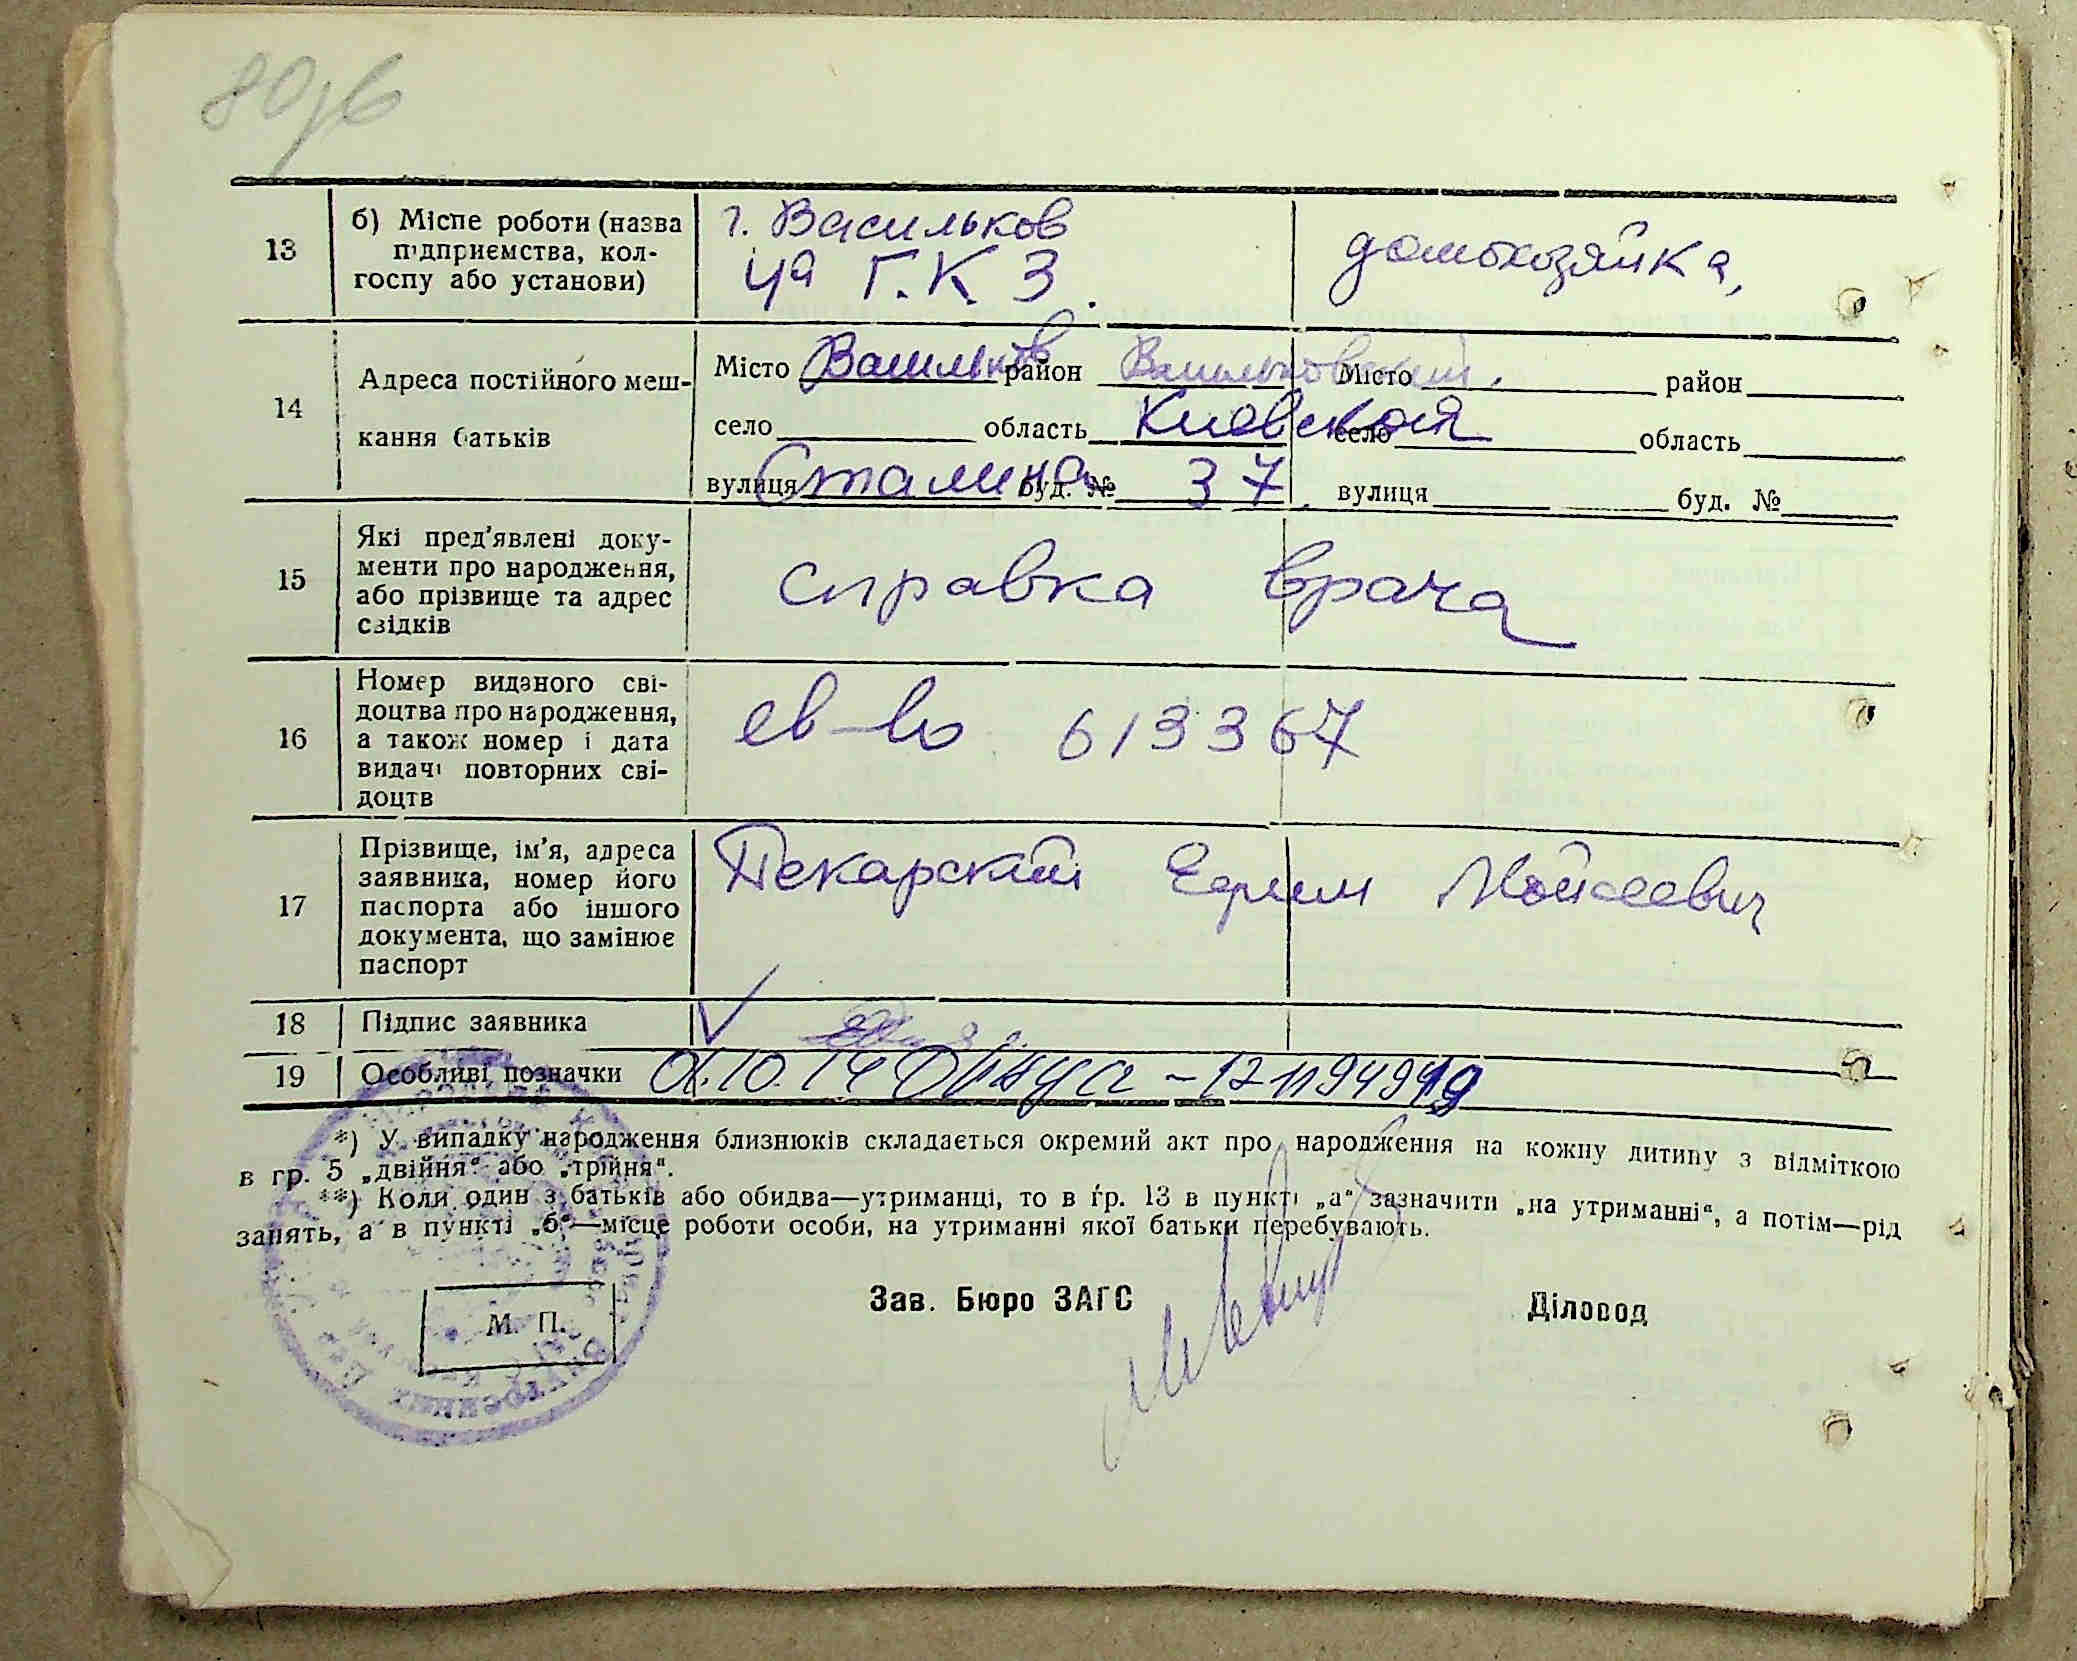 80/6
13
б) Місце роботи (назва
підприємства, кол-
госпу або установи)
г. Васильков
Г. К. З.
домохозяйка,
14
Адреса постійного меш-
кання батьків
Місто Васильков район Васильковский.
село область Киевская
вулиця Сталина буд. № 37.
Місто район
село область
вулиця буд. №
15
Які пред'явлені доку-
менти про народження,
або прізвище та адрес
свідків
справка врача
16
Номер виданого сві-
доцтва про народження,
а також номер і дата
видачі повторних сві-
доцтв
св-во 613367
17
Прізвище, ім'я, адреса
заявника, номер його
паспорта або іншого
документа, що замінює
паспорт
Пекарский Ефим Мойсеевич
18
Підпис заявника
19
Особливі позначки
01.10.14
*) У випадку народження близнюків складається окремий акт про народження на кожну дитину з відміткою
в гр. 5 „двійня“ або „трійня“.
**) Коли один з батьків або обидва—утриманці, то в гр. 13 в пункті „а“ зазначити „на утриманні“, а потім—рід
занять, а в пункті „б“—місце роботи особи, на утриманні якої батьки перебувають.
М. П.
Зав. Бюро ЗАГС
Діловод